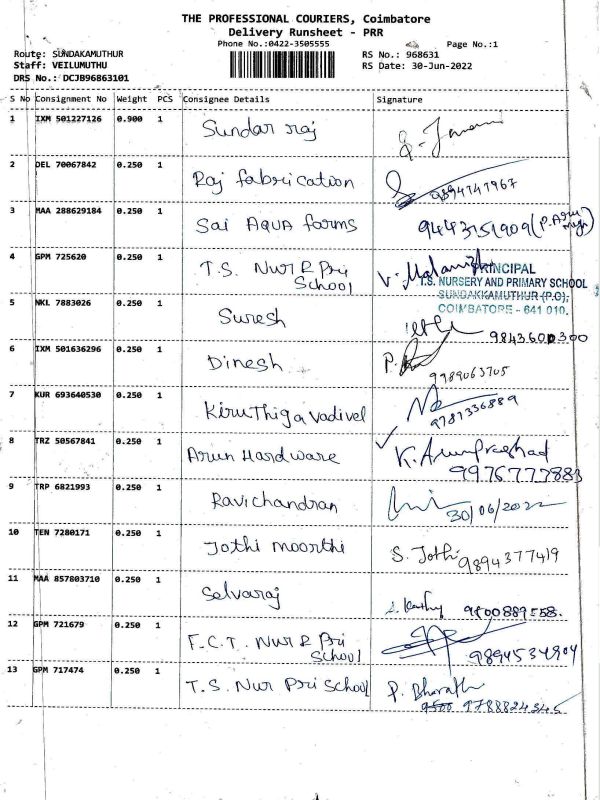 THE PROFESSIONAL COURIERS, Coimbatore
Delivery Runsheet - PRR
Phone No.:0422-3505555
Page No.:1
Route: SUNDAKAMUTHUR
RS No.: 968631
Staff: VEILUMUTHU
RS Date: 30-Jun-2022
DRS No.: DCJB96863101
S No Consignment No Weight PCS Consignee Details Signature
1 IXM 501227126 0.900 1 Sundar raj
2 DEL 70067842 0.250 1 Raj fabrication 9894747967
3 MAA 288629184 0.250 1 Sai AQUA farms 9443151909 (P.
4 GPM 725620 0.250 1 T.S. Nur & Pri
School
PRINCIPAL
T.S. NURSERY AND PRIMARY SCHOOL
SUNDAKKAMUTHUR (P.O),
COIMBATORE - 641 010.
5 NKL 7883026 0.250 1 Suresh
9843600300
6 IXM 501636296 0.250 1 Dinesh P.
9789063705
7 KUR 693640530 0.250 1 Kiruthiga vadivel
9787336889
8 TRZ 50567841 0.250 1 Arun Hardware K. Arunprashad
9976777883
9 TRP 6821993 0.250 1 Ravichandran
30/06/2022
10 TEN 7280171 0.250 1 Jothi moorthi S. Jothi 9894377419
11 MAA 857803710 0.250 1 Selvaraj
9800889558.
12 GPM 721679 0.250 1 F.C.T. Nur & Pri
School
9894534904
13 GPM 717474 0.250 1 T.S. Nur Pri School P. Bharath
9788824345